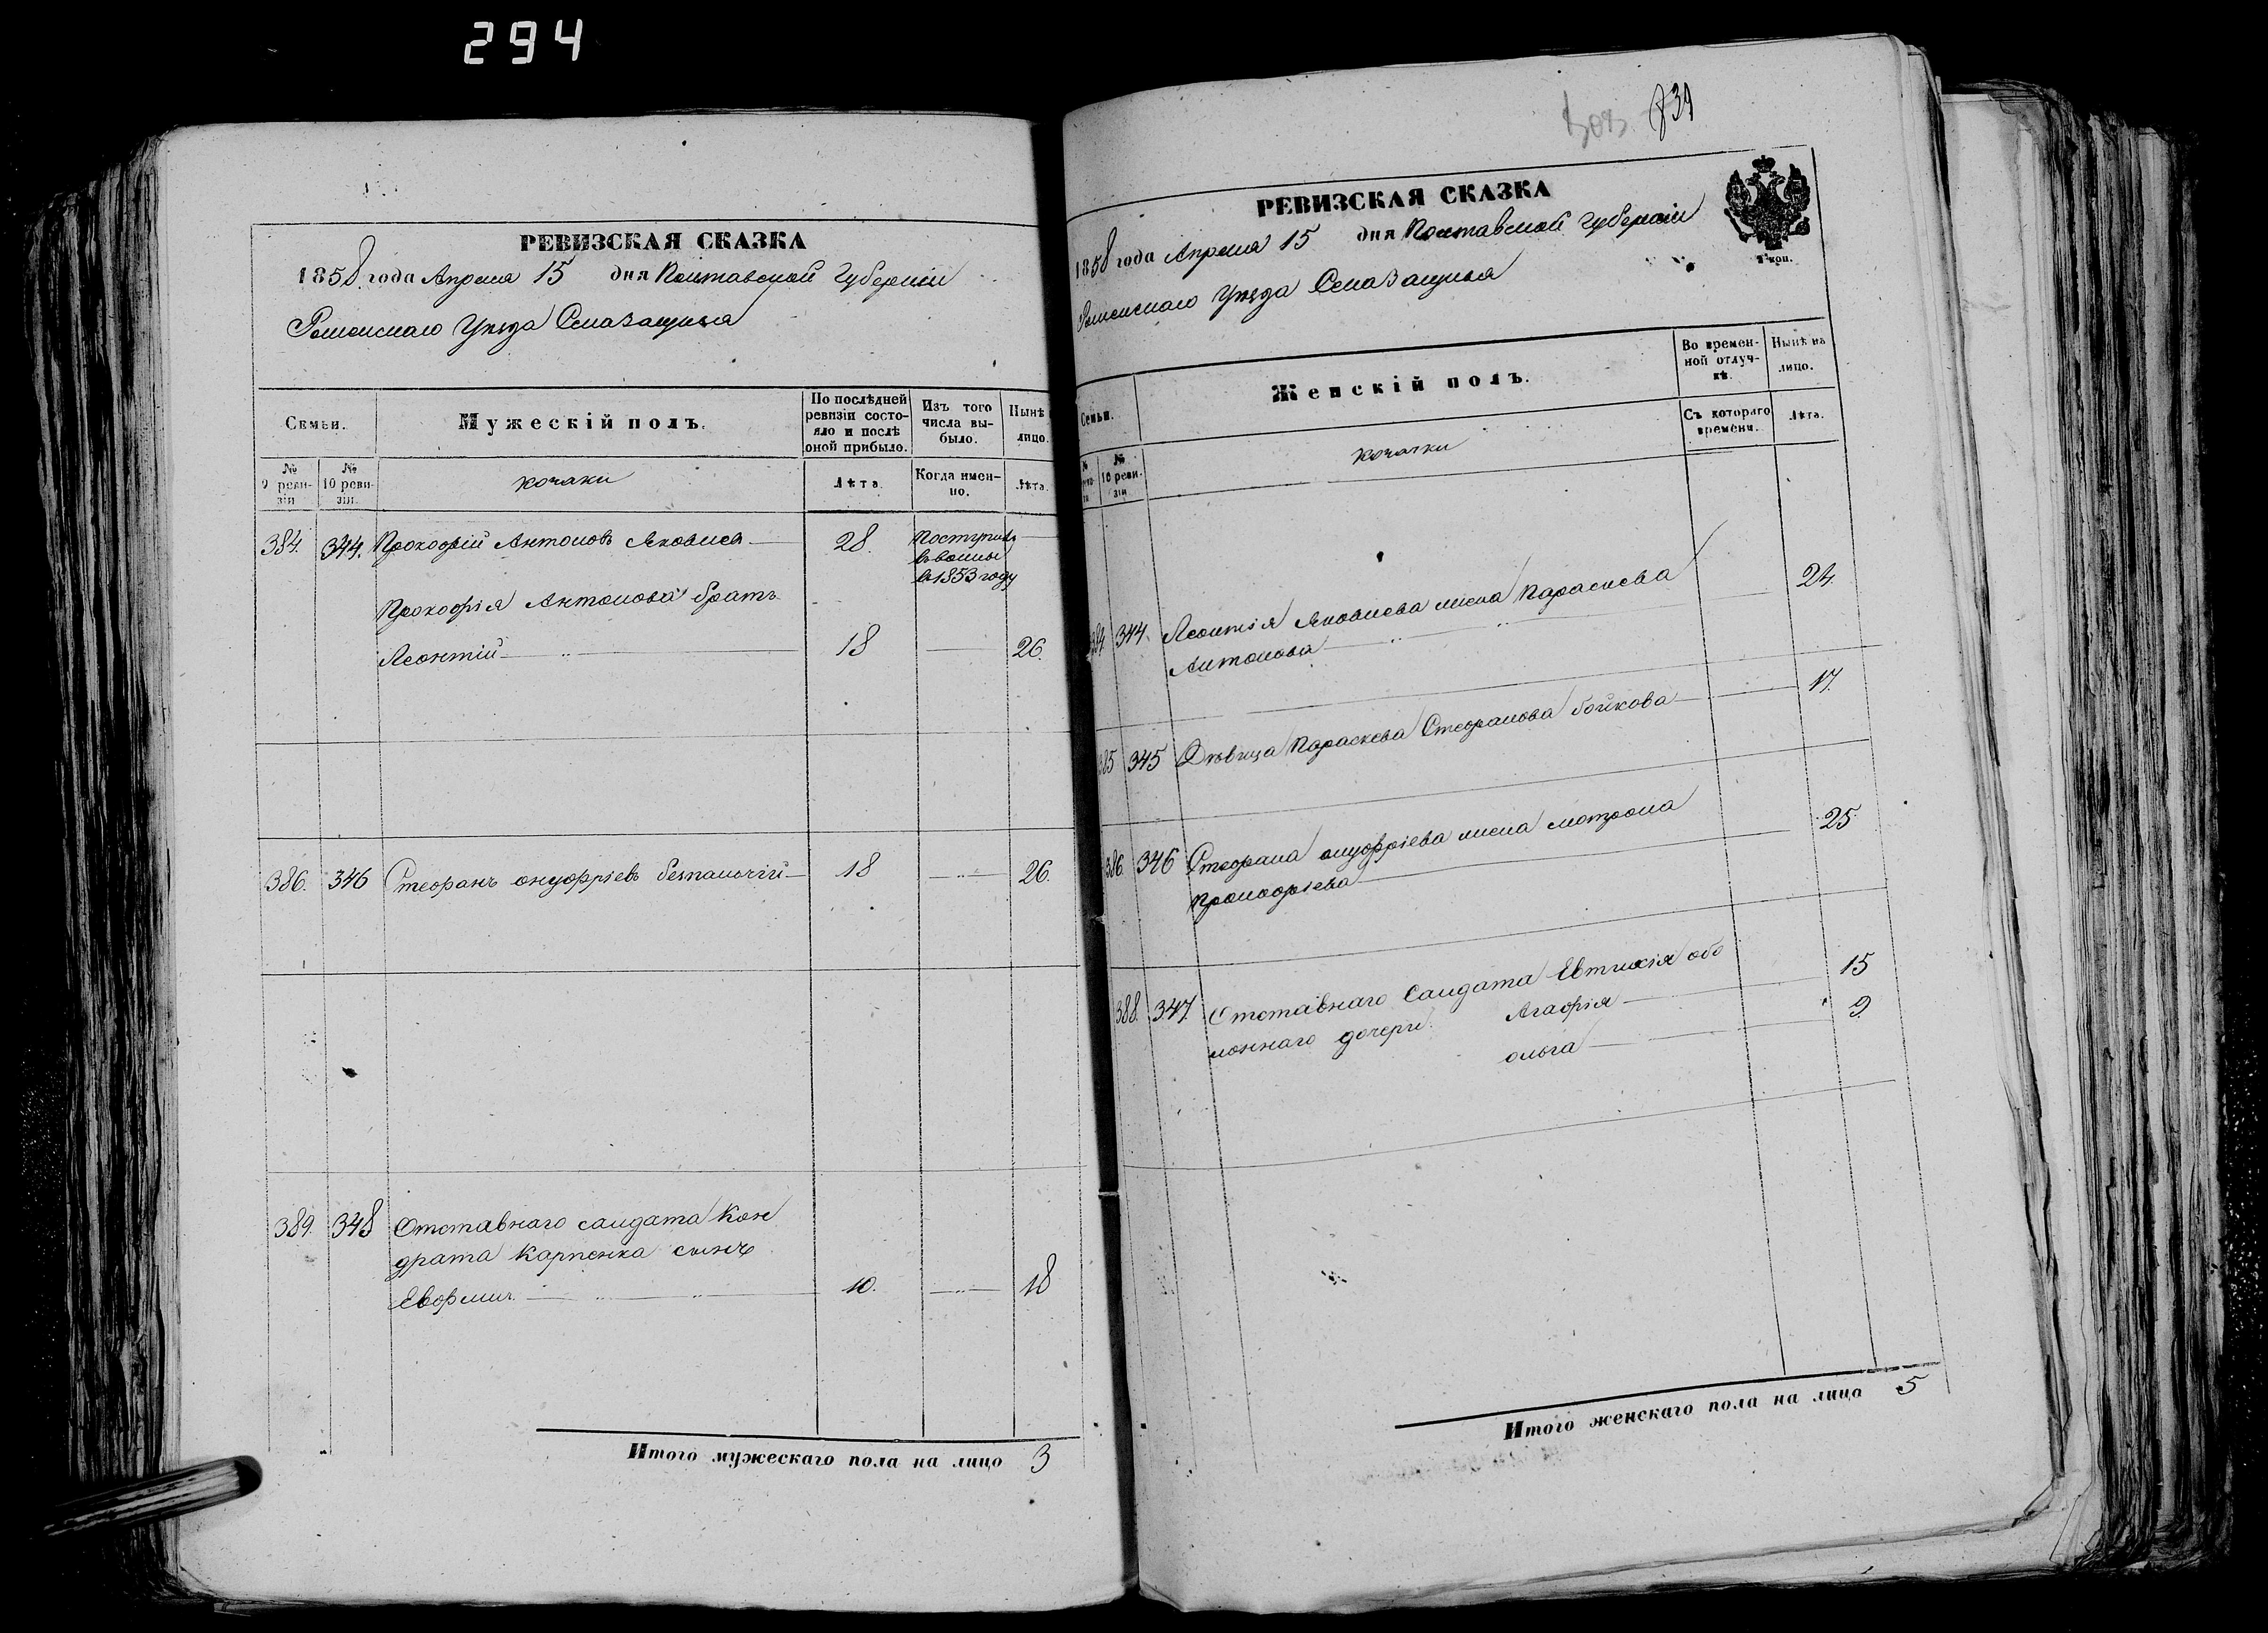 294
РЕВИЗСКАЯ СКАЗКА
1858 года Апреля 15 дня Полтавской Губерніи
Роменскаго Уѣзда Села Защыкъ
Семьи. Мужескій полъ. По послѣдней ревизіи состояло и послѣ оной прибыло. Изъ того числа выбыло. Нынѣ лицо.
№ 9 ревизіи № 10 ревизіи. козаки Лѣта Когда именно. Лѣта.
384. 344. Прокофій Антоновъ Яковлев 28. Поступилъ
в 1853 году
Прокофія Антонова братъ
Леонтій 18 26.
386. 346 Стефанъ онуфріевъ безпалочій 18 26.
389. 348 Отставнаго салдата Кон
драта Карпенка сынъ
Евфимъ 10. 18
Итого мужескаго пола на лицо 3
739
РЕВИЗСКАЯ СКАЗКА
1858 года Апреля 15 дня Полтавской Губерніи
Роменскаго Уѣзда Села
Семьи. Женскій полъ. Во временной отлучкѣ. Нынѣ на лицо.
№ № 10 ревизіи козачки Съ котораго времени. Лѣта.
384 344. Леонтія Яковлева жена Параскева 24.
Антонова
385 345 Дѣвица Параскева Стефанова бойкова 17.
386. 346 Стефана онуфріева жена мотрона 25.
Прокофіева
388. 347. Отставнаго Салдата Евтихія обо
лоннаго дочери Агафія 15
олга 9.
Итого женскаго пола на лицо 5